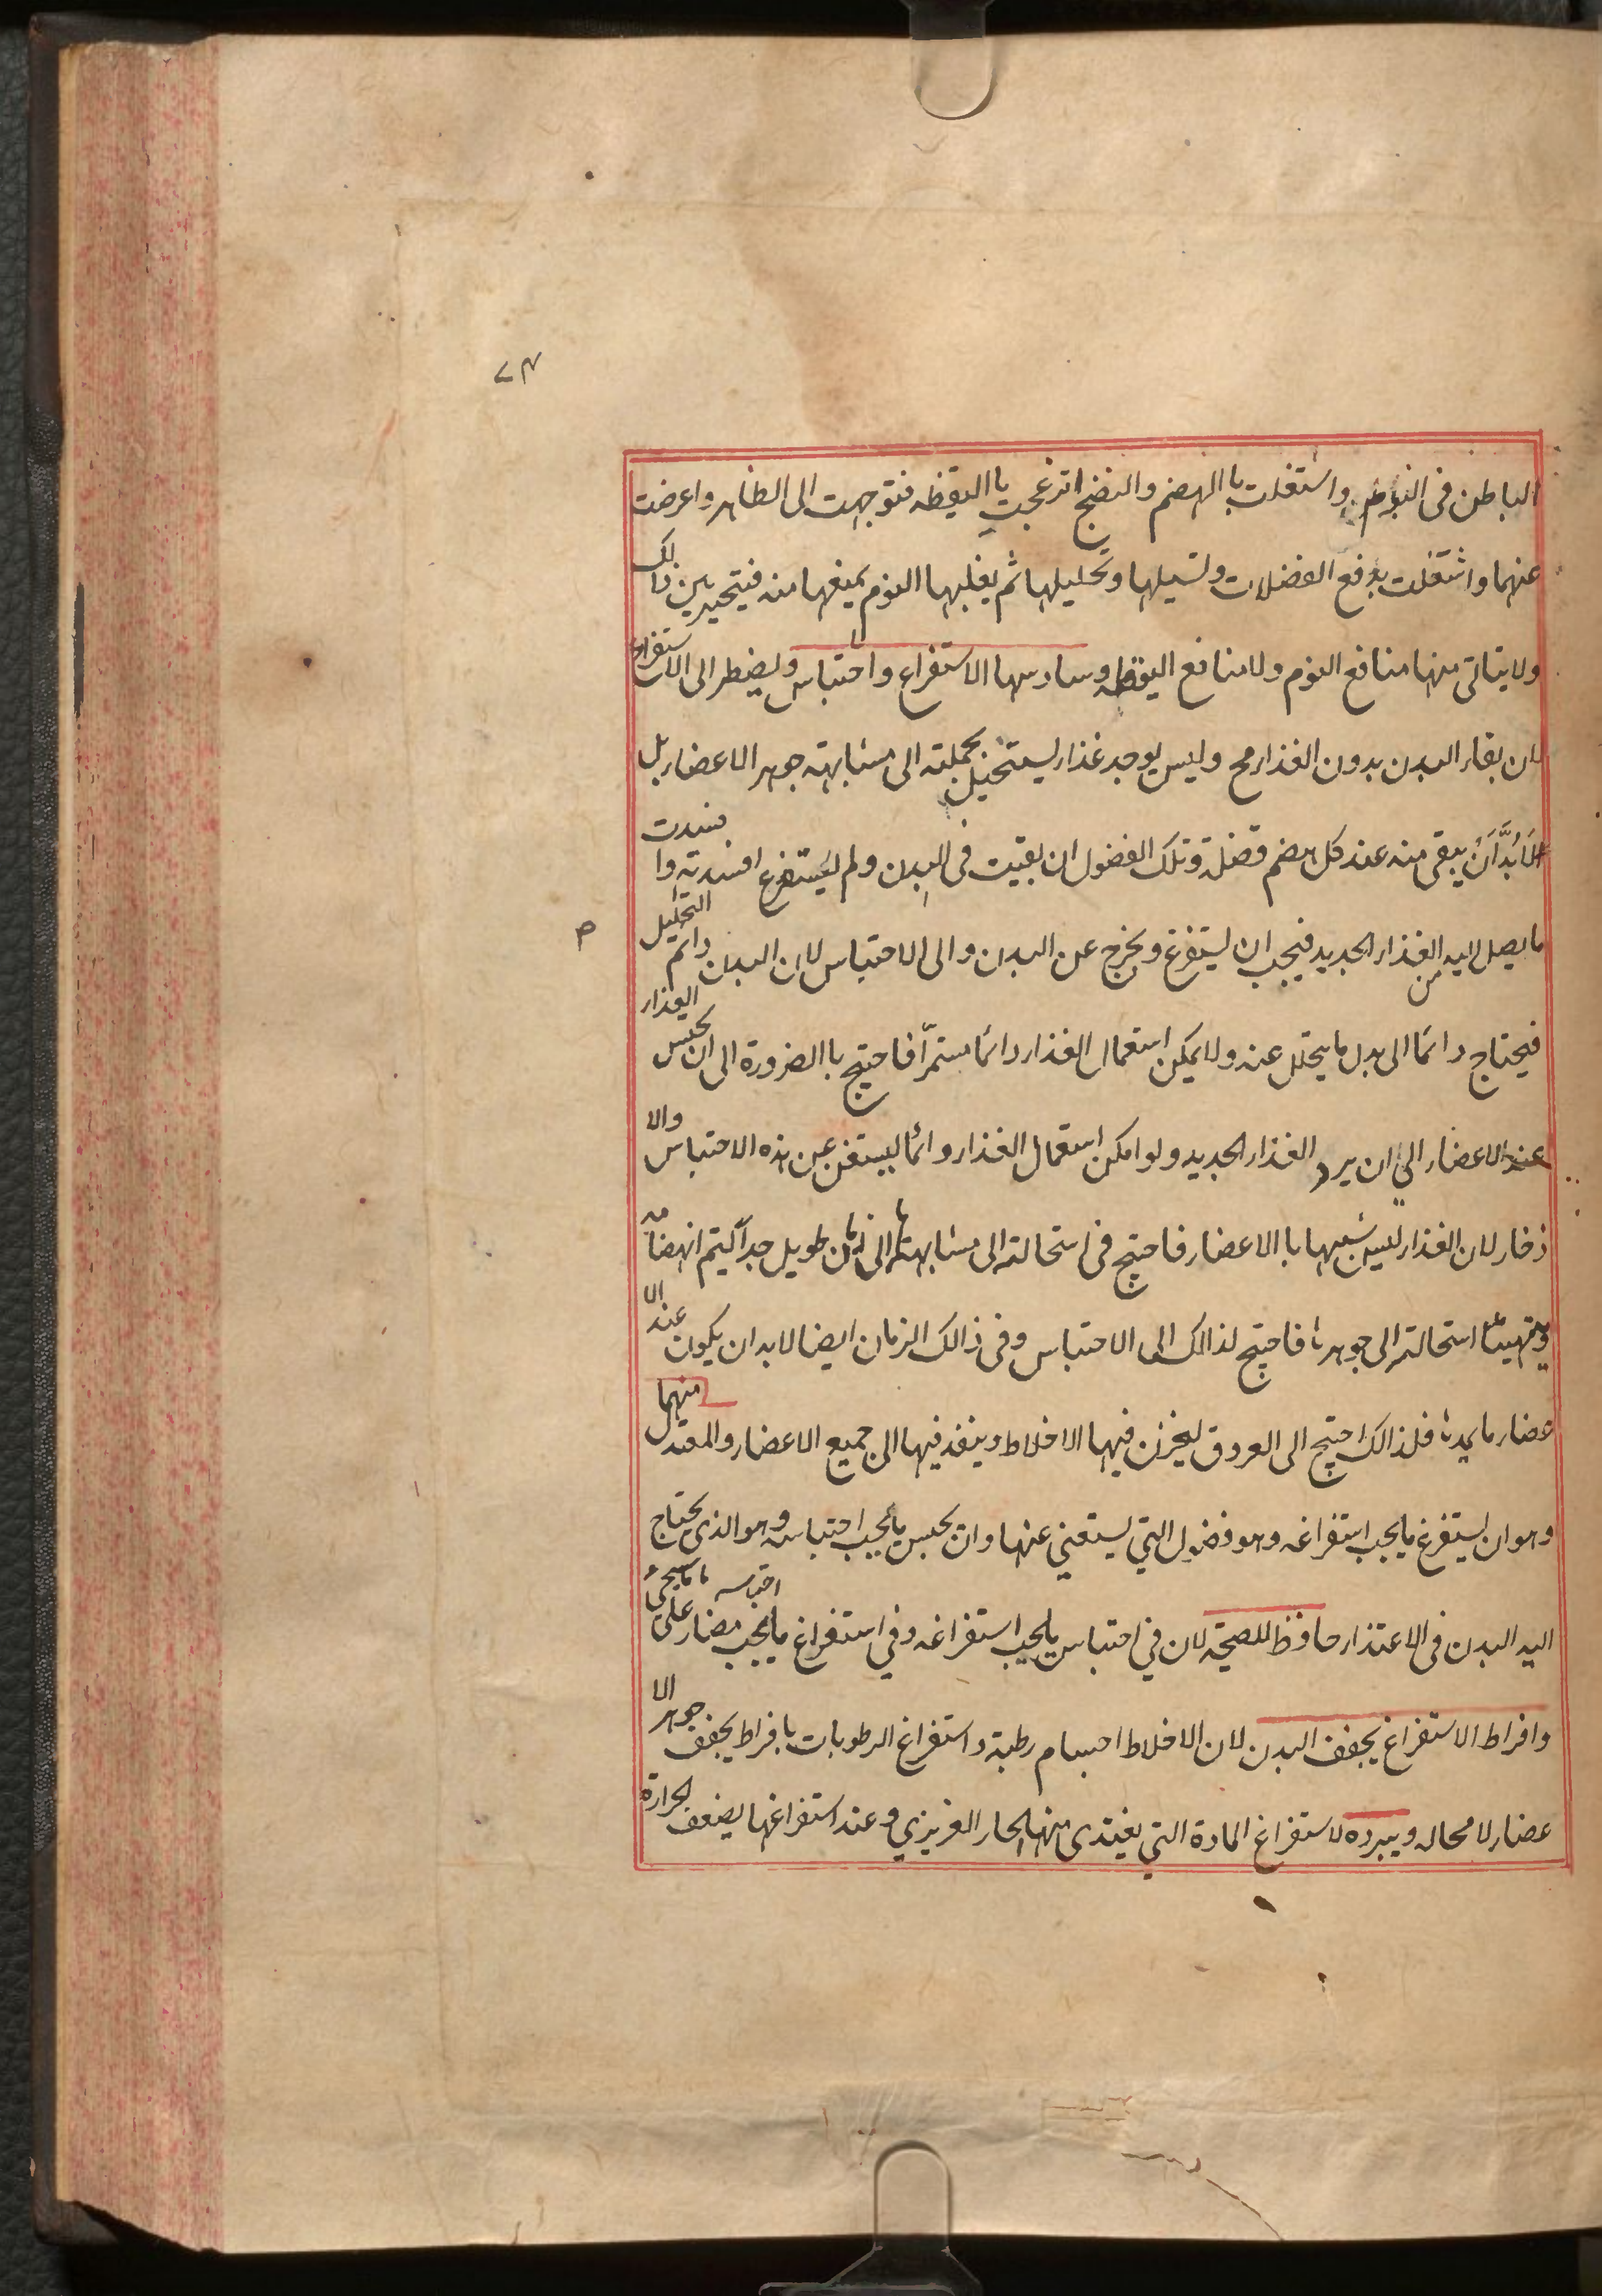 ٧٤
الباطن فى النوم واشتغلت باالهضم والنضج انزعجت باليقظه فتوجهت الى الظاهر واعرضت
عنهما واشتغلت بدفع الفضلات وتسيلها وتحليلها ثم يغلبها النوم يمنعها منه فيتحير بين ذالك
ولا يتاتى منها منافع النوم ولا منافع اليقظه وسادسها الاستفراغ واحتباس ويضطر الى الاستفراغ
لان بقاء البدن بدون الغذاء مح وليس يوجد غذاء يستحيل بجملته الى مشابهته جوهر الاعضاء بل
لَابُدَّ اَنْ يبقى منه عند كل هضم فضلة وتلك الفضول ان بقيت فى البدن ولم يستفرغ افسدته وافسدت
ما يصل اليه من الغذاء الجديد فيجب ان يستفرغ ويخرج عن البدن والى الاحتباس لان البدن دائم التحليل
فيحتاج دائما الى بدل ما يتحلل عنه ولا يمكن استعمال الغذاء دائما مستمرّا فاحتيج باالضرورة الى ان يحبس الغذاء
عند الاعضاء الى ان يرد الغذاء الجديد ولو امكن استعمال الغذاء دائما ليستغن عن هذه الاحتباس والا
ذخار لان الغذاء ليس شبيها باالاعضاء فاحتيج فى استحالته الى مشابهتها الى زمان طويل جداً ليتم انهضامه
ويتهيئا استحالته الى جوهرها فاحتيج لذالك الى الاحتباس وفى ذالك الزمان ايضا لابد ان يكون عند الا
عضاء ما يمدها فلذالك احتيج الى العروق ليخزن فيها الاخلاط وينفذ فيها الى جميع الاعضاء والمعتدل منهما
وهو ان يستفرغ ما يجب استفراغه وهو فضول التي يستغني عنها وان يحبس ما يجب احتباسه وهو الذى يحتاج
اليه البدن فى الاغتذاء حافظ للصحة لان في احتباس ما يجب استفراغه وفي استفراغ ما يجب احتباسه مضار على ما سيجىء
وافراط الاستفراغ يجفف البدن لان الاخلاط اجسام رطبة واستفراغ الرطوبات بافراط يجفف جوهر الا
عضاء لا محاله ويبرده لاستفراغ المادة التي يغتدى منها الحار الغريزي وعند استفراغها يضعف الحرارة